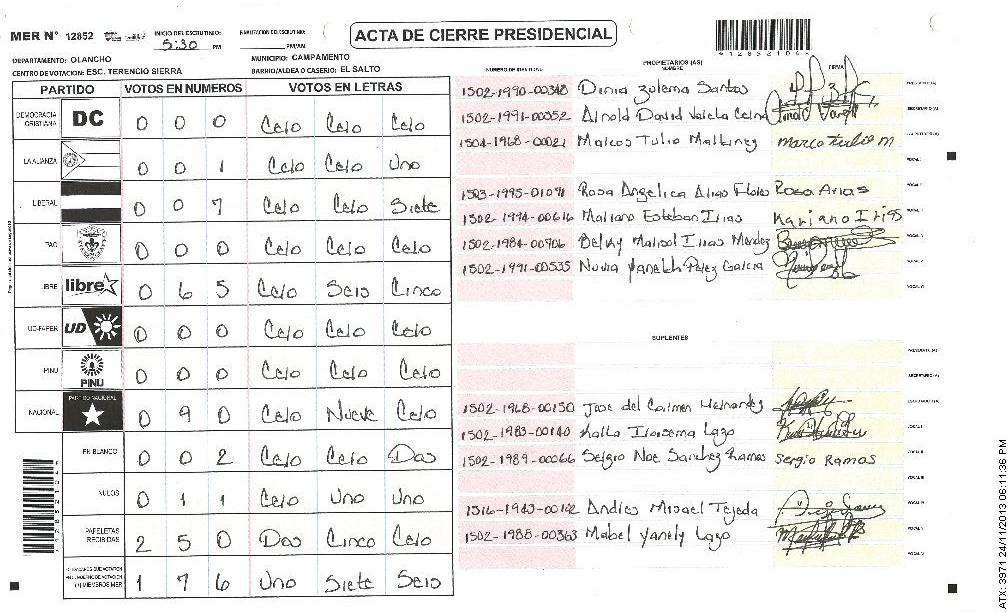 MER N° 12852
INICIO DEL ESCRUTINIO: 5:30 PM
FINALIZACION DEL ESCRUTINIO: PM/AM
ACTA DE CIERRE PRESIDENCIAL
DEPARTAMENTO: OLANCHO
MUNICIPIO: CAMPAMENTO
CENTRO DE VOTACION: ESC. TERENCIO SIERRA
BARRIO/ALDEA O CASERIO: EL SALTO
PARTIDO VOTOS EN NUMEROS VOTOS EN LETRAS
DEMOCRACIA CRISTIANA DC 0 0 0 Cero Cero Cero
LA ALIANZA 0 0 1 Cero Cero Uno
LIBERAL 0 0 7 Cero Cero Siete
PAC 0 0 0 Cero Cero Cero
LIBRE libre 0 6 5 Cero Seis Cinco
UD-FAPER UD 0 0 0 Cero Cero Cero
PINU PINU 0 0 0 Cero Cero Cero
NACIONAL PARTIDO NACIONAL 0 9 0 Cero Nueve Cero
EN BLANCO 0 0 2 Cero Cero Dos
NULOS 0 1 1 Cero Uno Uno
PAPELETAS RECIBIDAS 2 5 0 Dos Cinco Cero
CIUDADANOS QUE VOTARON EN CUADERNO DE VOTACION (+) MIEMBROS MER 1 7 6 Uno Siete Seis
NUMERO DE IDENTIDAD PROPIETARIOS (AS) NOMBRE FIRMA
1502-1990-00348 Dinia Zulema Santos
1502-1991-00352 Arnold David Varela
1504-1968-00021 Marcos Tulio Martinez marco tulio m
1503-1995-01091 Rosa Angelica Arias Flores Rosa Arias
1502-1994-00616 Mariano Esteban Irias Mariano Irias
1502-1984-00906 Belky Marisol Irias Mendez
1502-1991-00535 Nuvia Yaneth Perez Garcia
SUPLENTES
1502-1968-00150 Jose del Carmen Hernandez
1502-1983-00140 Karla Iroisema Lazo
1502-1989-00066 Sergio Noe Sanchez Ramos Sergio Ramos
1516-1943-00162 Andres Misael Tejeda
1502-1988-00363 Mabel Yanely Lazo
ATX: 3971 24/11/2013 06:11:36 PM